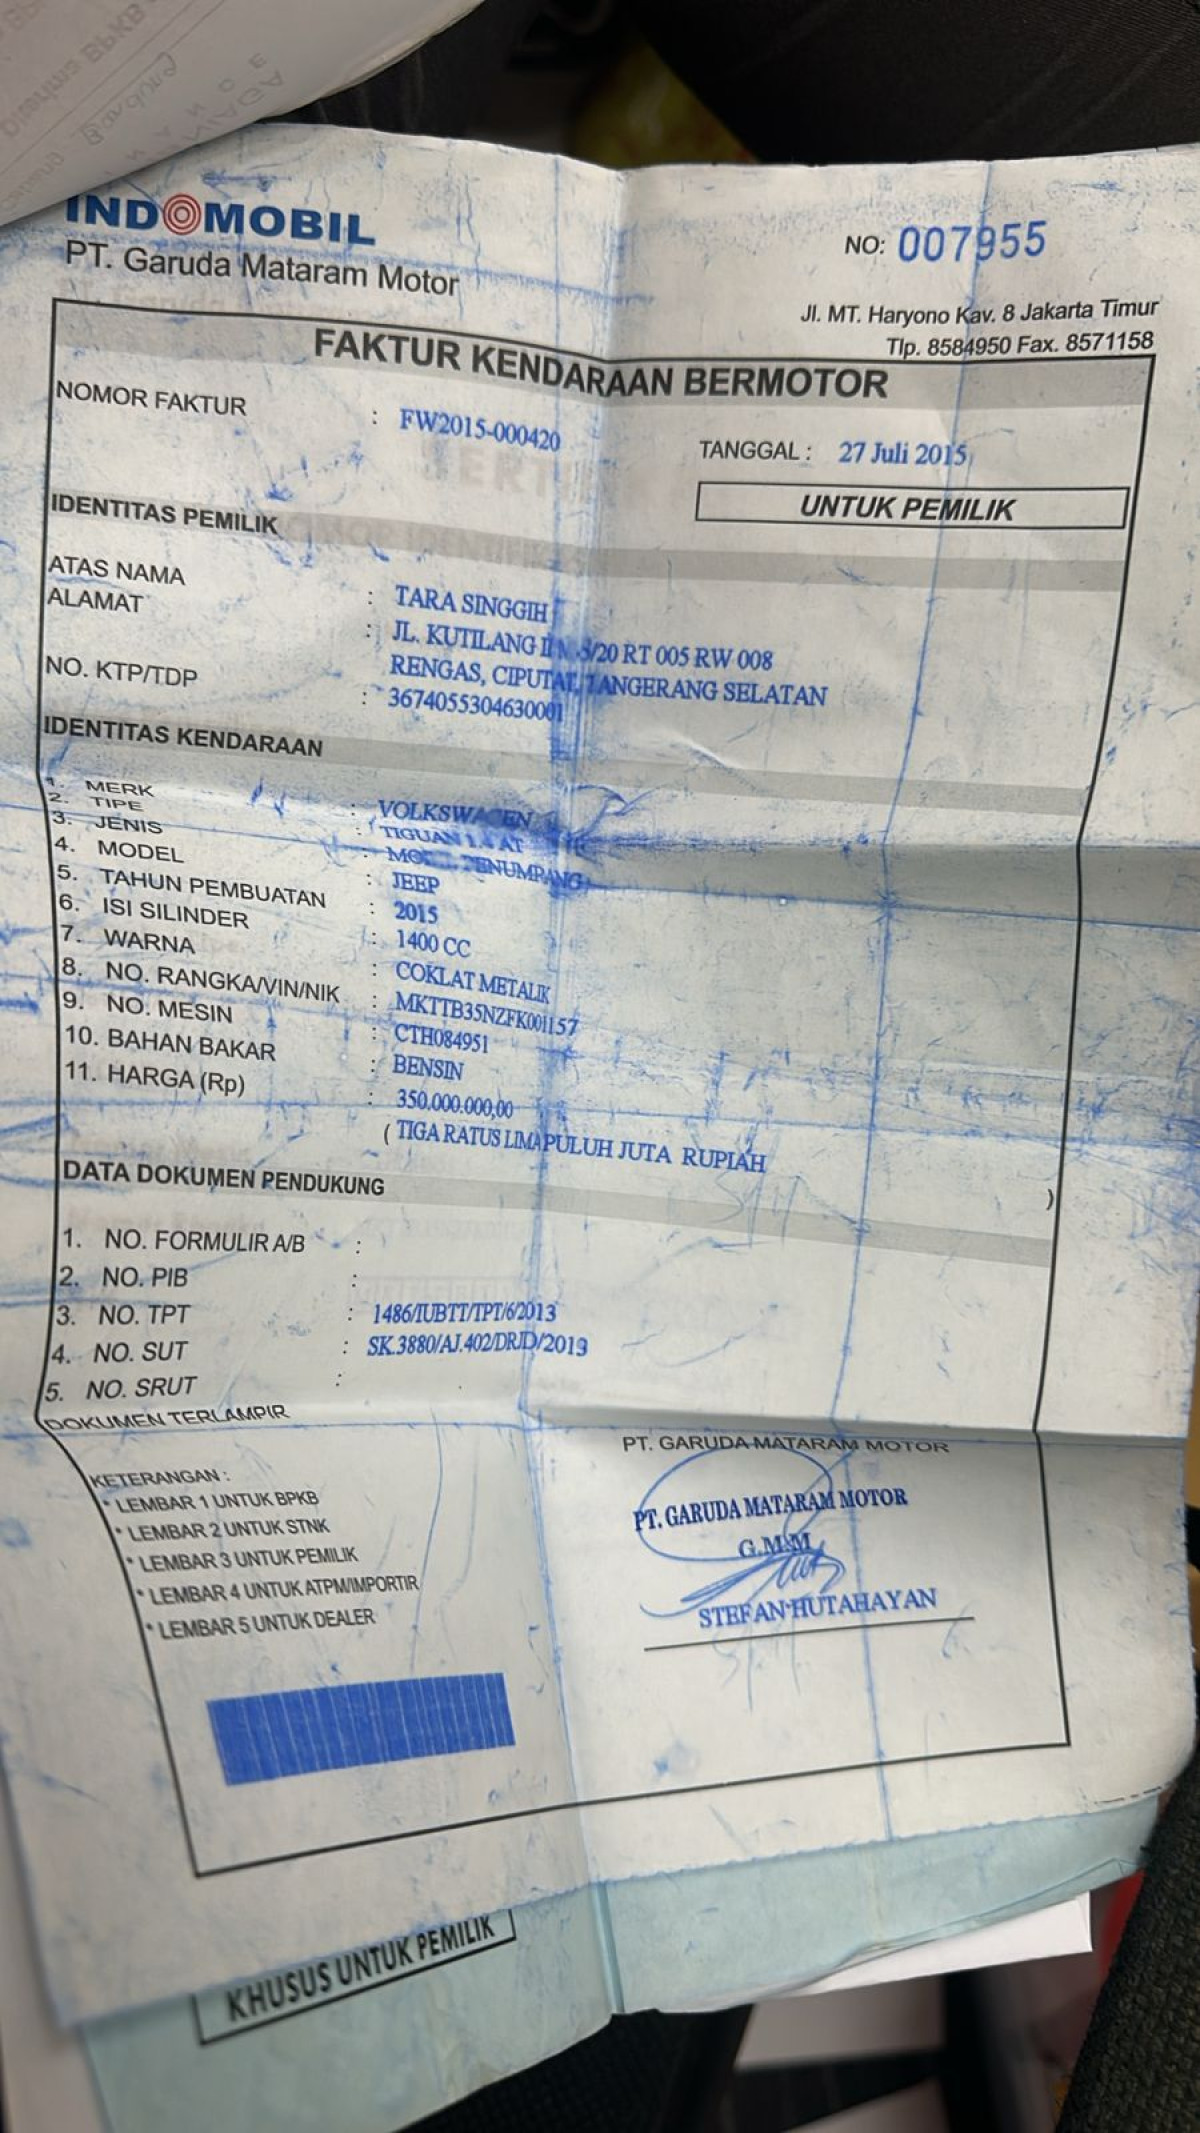 Bandung
INDOMOBIL
PT. Garuda Mataram Motor
NO: 007955
Jl. MT. Haryono Kav. 8 Jakarta Timur
Tlp. 8584950 Fax. 8571158
FAKTUR KENDARAAN BERMOTOR
NOMOR FAKTUR : FW2015-000420
TANGGAL : 27 Juli 2015
UNTUK PEMILIK
IDENTITAS PEMILIK
ATAS NAMA : TARA SINGGIH
ALAMAT : JL. KUTILANG RT 005 RW 008
RENGAS, CIPUTAT, TANGERANG SELATAN
NO. KTP/TDP : 3674055304630001
IDENTITAS KENDARAAN
1. MERK : VOLKSWAGEN
2. TIPE : TIGUAN 1.4 AT
3. JENIS : PENUMPANG
4. MODEL : JEEP
5. TAHUN PEMBUATAN : 2015
6. ISI SILINDER : 1400 CC
7. WARNA : COKLAT METALIK
8. NO. RANGKA/VIN/NIK : MKTTB35NZFK001157
9. NO. MESIN : CTH084951
10. BAHAN BAKAR : BENSIN
11. HARGA (Rp) : 350.000.000,00
( TIGA RATUS LIMAPULUH JUTA RUPIAH )
DATA DOKUMEN PENDUKUNG
1. NO. FORMULIR A/B :
2. NO. PIB :
3. NO. TPT : 1486/IUBTT/TPT/6/2013
4. NO. SUT : SK.3880/AJ.402/DRJD/2019
5. NO. SRUT :
DOKUMEN TERLAMPIR
PT. GARUDA MATARAM MOTOR
KETERANGAN :
* LEMBAR 1 UNTUK BPKB
* LEMBAR 2 UNTUK STNK
* LEMBAR 3 UNTUK PEMILIK
* LEMBAR 4 UNTUK ATPM/IMPORTIR
* LEMBAR 5 UNTUK DEALER
PT. GARUDA MATARAM MOTOR
G.M.M
STEFAN HUTAHAYAN
KHUSUS UNTUK PEMILIK